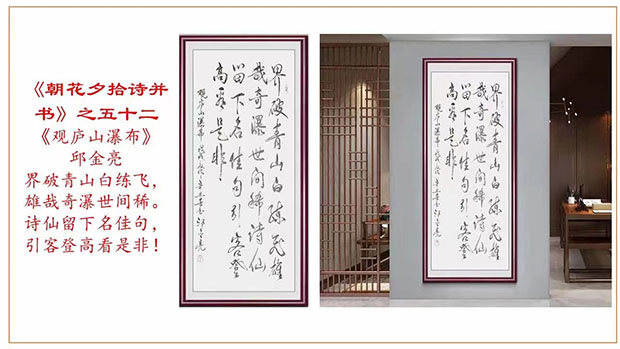 《朝花夕拾诗并
书》之五十二
《观庐山瀑布》
邱金亮
界破青山白练飞，
雄哉奇瀑世间稀。
诗仙留下名佳句，
引客登高看是非！
界破青山白练飞雄
哉奇瀑世间稀诗仙
留下名佳句引客登
高看是非
观庐山瀑布
界破青山白练飞雄
哉奇瀑世间稀诗仙
留下名佳句引客登
高看是非
观庐山瀑布